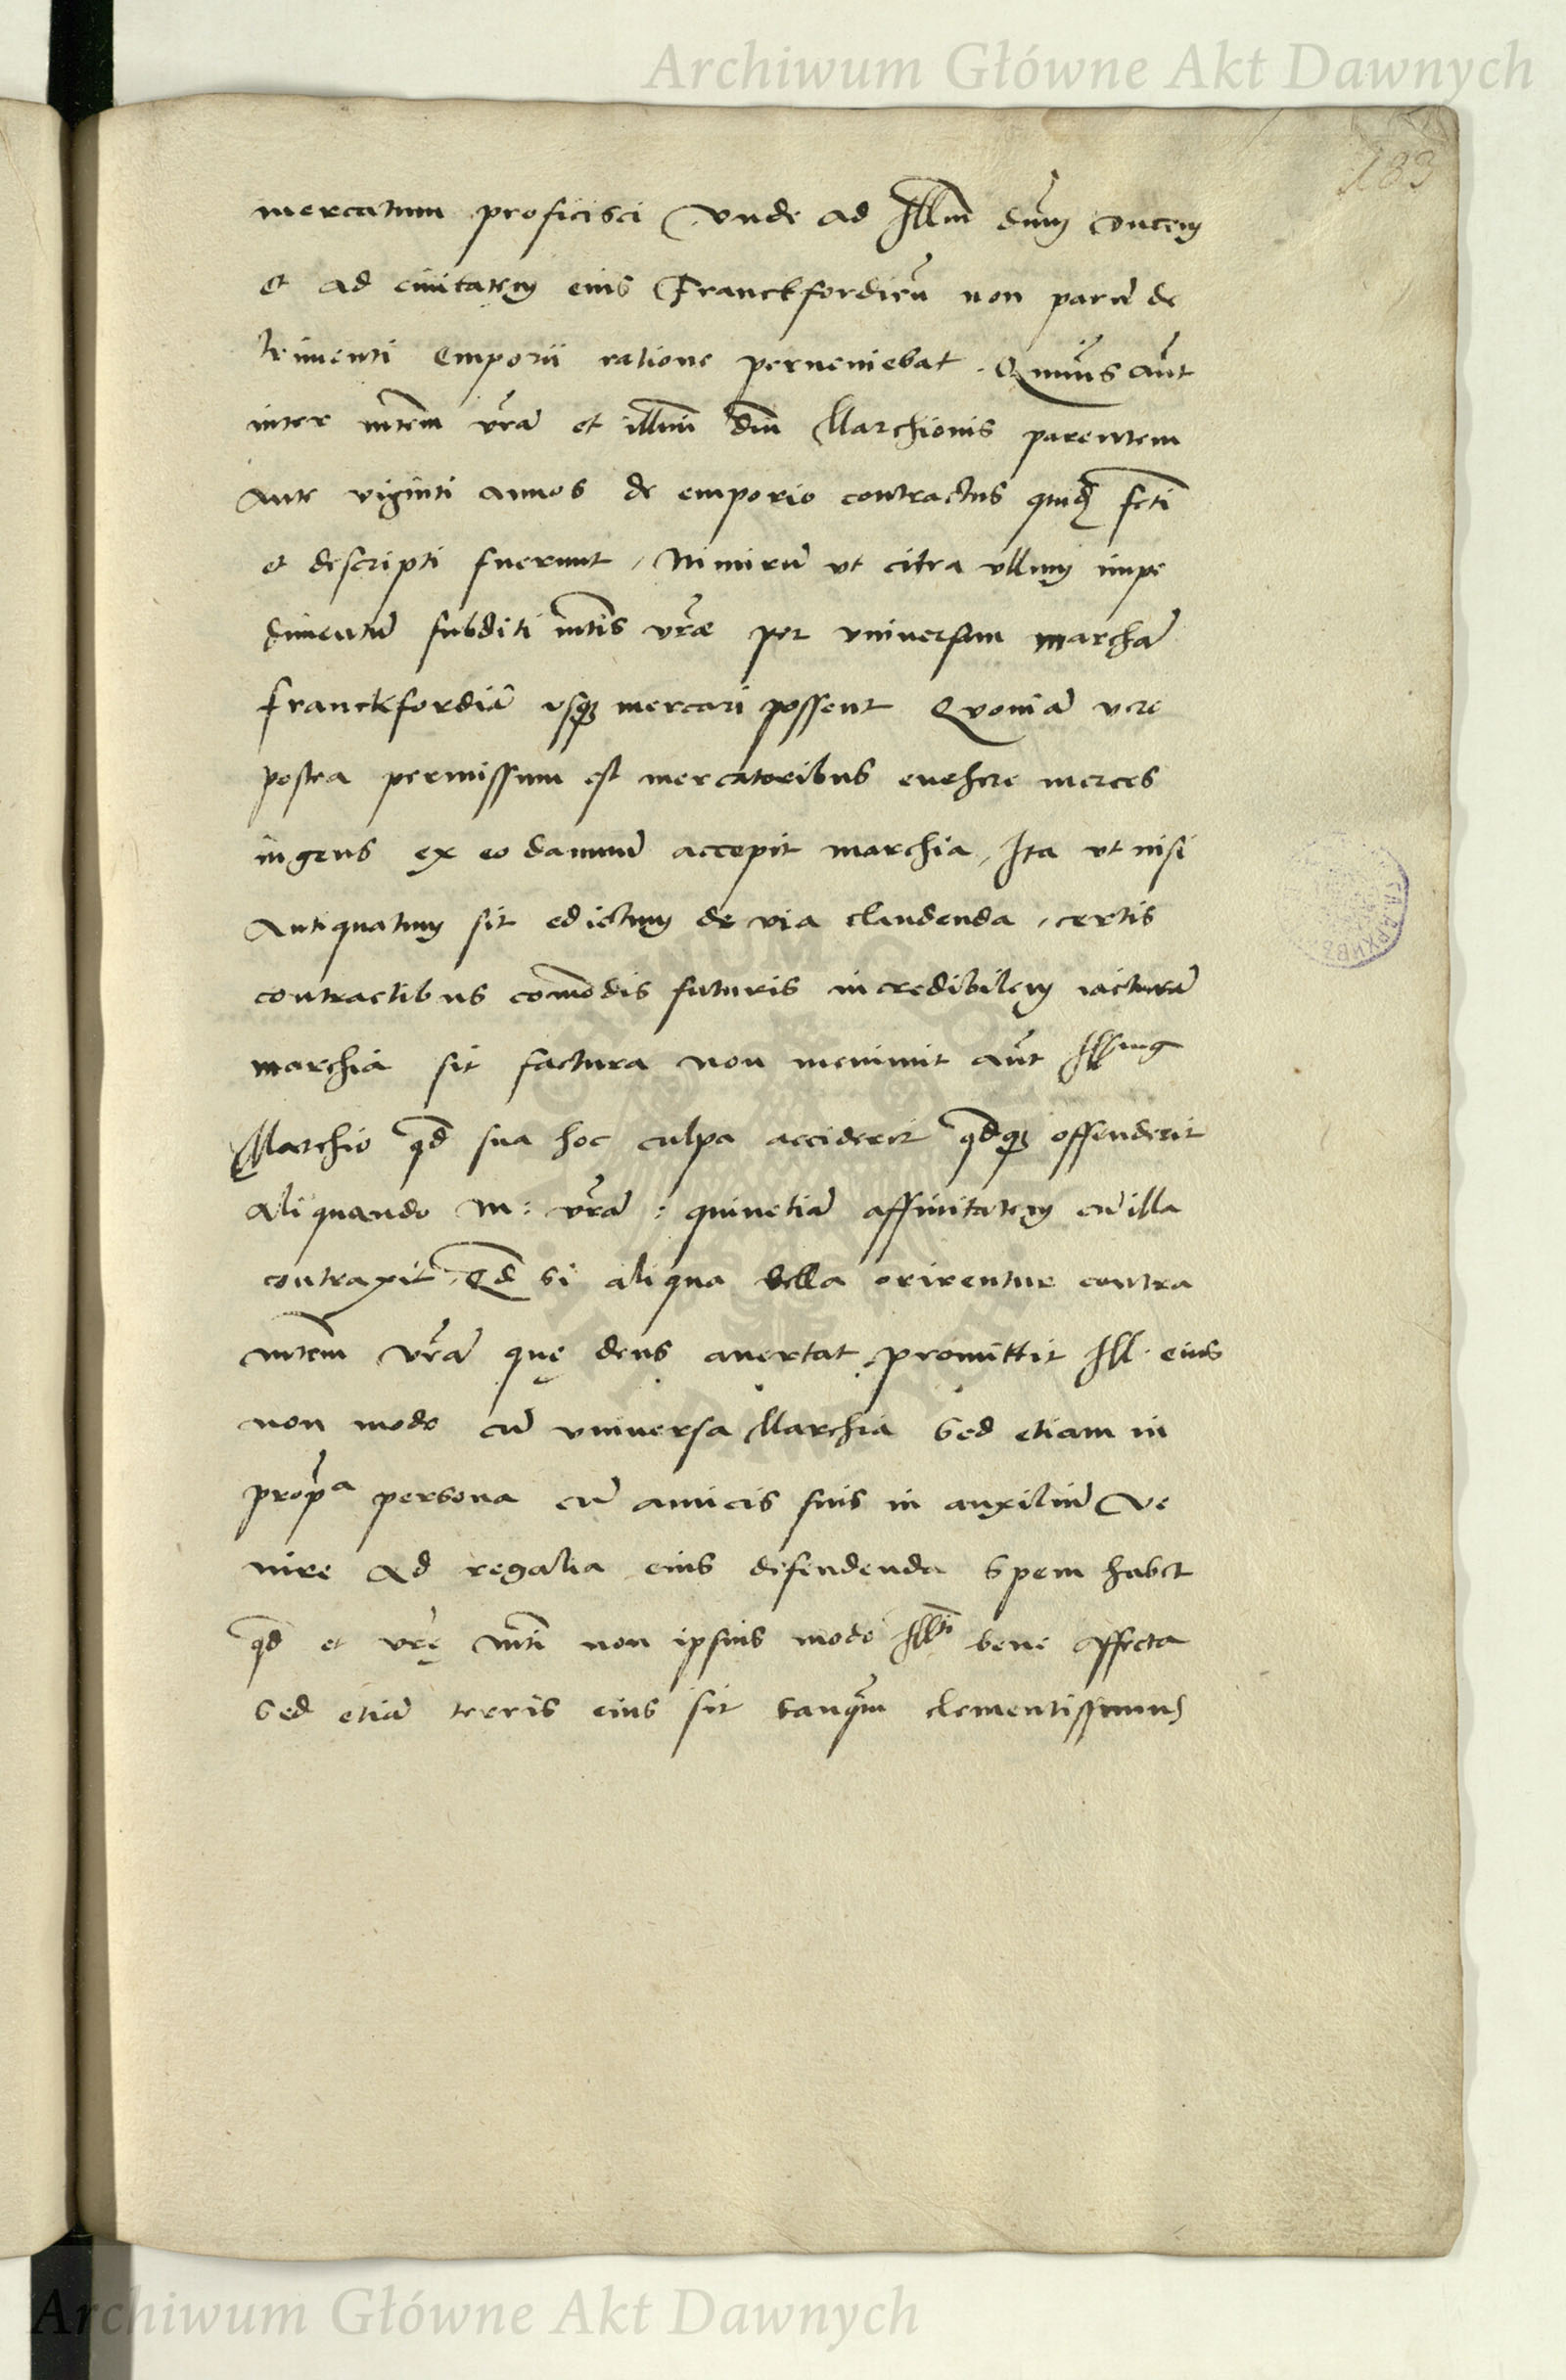 Archiwum Główne Akt Dawnych
183
mercatum proficisci Vnde ad Illm dnm Ducem
et ad ciuitatem eius Franckfordieñ non parũ de
trimenti Emporii ratione perueniebat. Quãuis aũt
inter mtem vrã et illmi dni Marchionis parentem
Ante viginti annos de emporio contractus quidã fcti
et descripti fuerunt, Nimirũ vt citra vllum impe
dimentũ subditi mtis vræ per vniuersum marchã
franckfordiã vsq; mercari possent Quoniã vere
postea permissum est mercatoribus euehere merces
ingens ex eo damnũ accepit marchia, Ita vt nisi
Antiquatum sit edictum de via claudenda, certis
contractibus com̃odis futuris incredibilem iacturã
marchia sit factura non meminit aũt Illmus
Marchio qd sua hoc culpa acciderit qdq; offenderit
Aliquando M: vrã: quinetiã affinitatem cũ illa
contraxit, Qd si aliqua bella orirentur contra
mtem vrã quę deus auertat, promittit Ill. eius
non modo cũ vniuersa Marchia Sed etiam in
propa persona cũ amicis suis in auxiliũ Ve
nire Ad regalia eius defendenda Spem habet
qd et vrę mti non ipsius modo Illti bene Affecta
Sed etiã terris eius sit tanqm clementissimus
Archiwum Główne Akt Dawnych